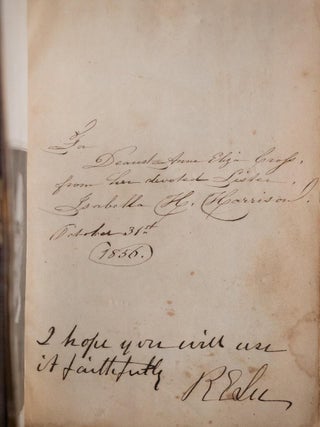 To
Dearest Anne Eliza Cross,
from her devoted Sister,
Isabella H. Harrison.
October 31st
1856.
I hope you will use
it faithfully
RELee